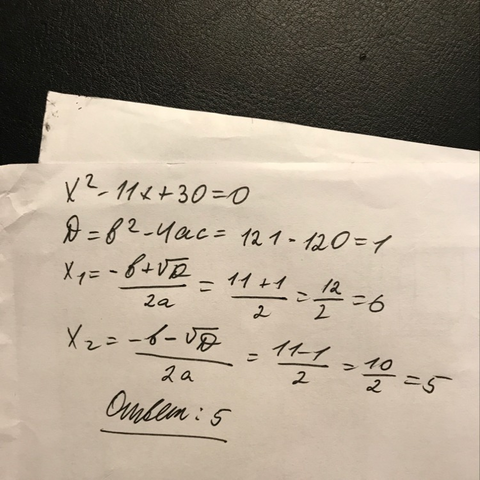 x² - 11x + 30 = 0
D = b² - 4ac = 121 - 120 = 1
x₁ = (-b + √D) / 2a = (11 + 1) / 2 = 12/2 = 6
x₂ = (-b - √D) / 2a = (11 - 1) / 2 = 10/2 = 5
Ответ: 5